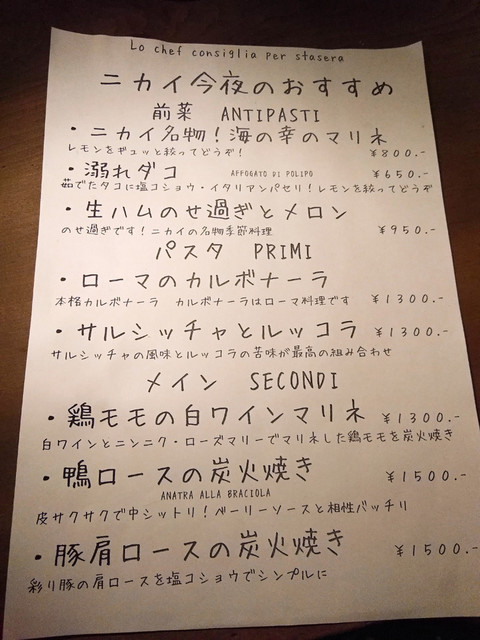 Lo chef consiglia per stasera
ニカイ今夜のおすすめ
前菜 ANTIPASTI
・ニカイ名物！海の幸のマリネ
レモンをギュッと絞ってどうぞ！ ￥800.-
・溺れダコ AFFOGATO DI POLIPO ￥650.-
茹でたタコに塩コショウ・イタリアンパセリ！レモンを絞ってどうぞ
・生ハムのせ過ぎとメロン
のせ過ぎです！ニカイの名物季節料理 ￥950.-
パスタ PRIMI
・ローマのカルボナーラ
本格カルボナーラ カルボナーラはローマ料理です ￥1300.-
・サルシッチャとルッコラ ￥1300.-
サルシッチャの風味とルッコラの苦味が最高の組み合わせ
メイン SECONDI
・鶏モモの白ワインマリネ ￥1300.-
白ワインとニンニク・ローズマリーでマリネした鶏モモを炭火焼き
・鴨ロースの炭火焼き ￥1500.-
ANATRA ALLA BRACIOLA
皮サクサクで中シットリ！ベーリーソースと相性バッチリ
・豚肩ロースの炭火焼き ￥1500.-
彩り豚の肩ロースを塩コショウでシンプルに